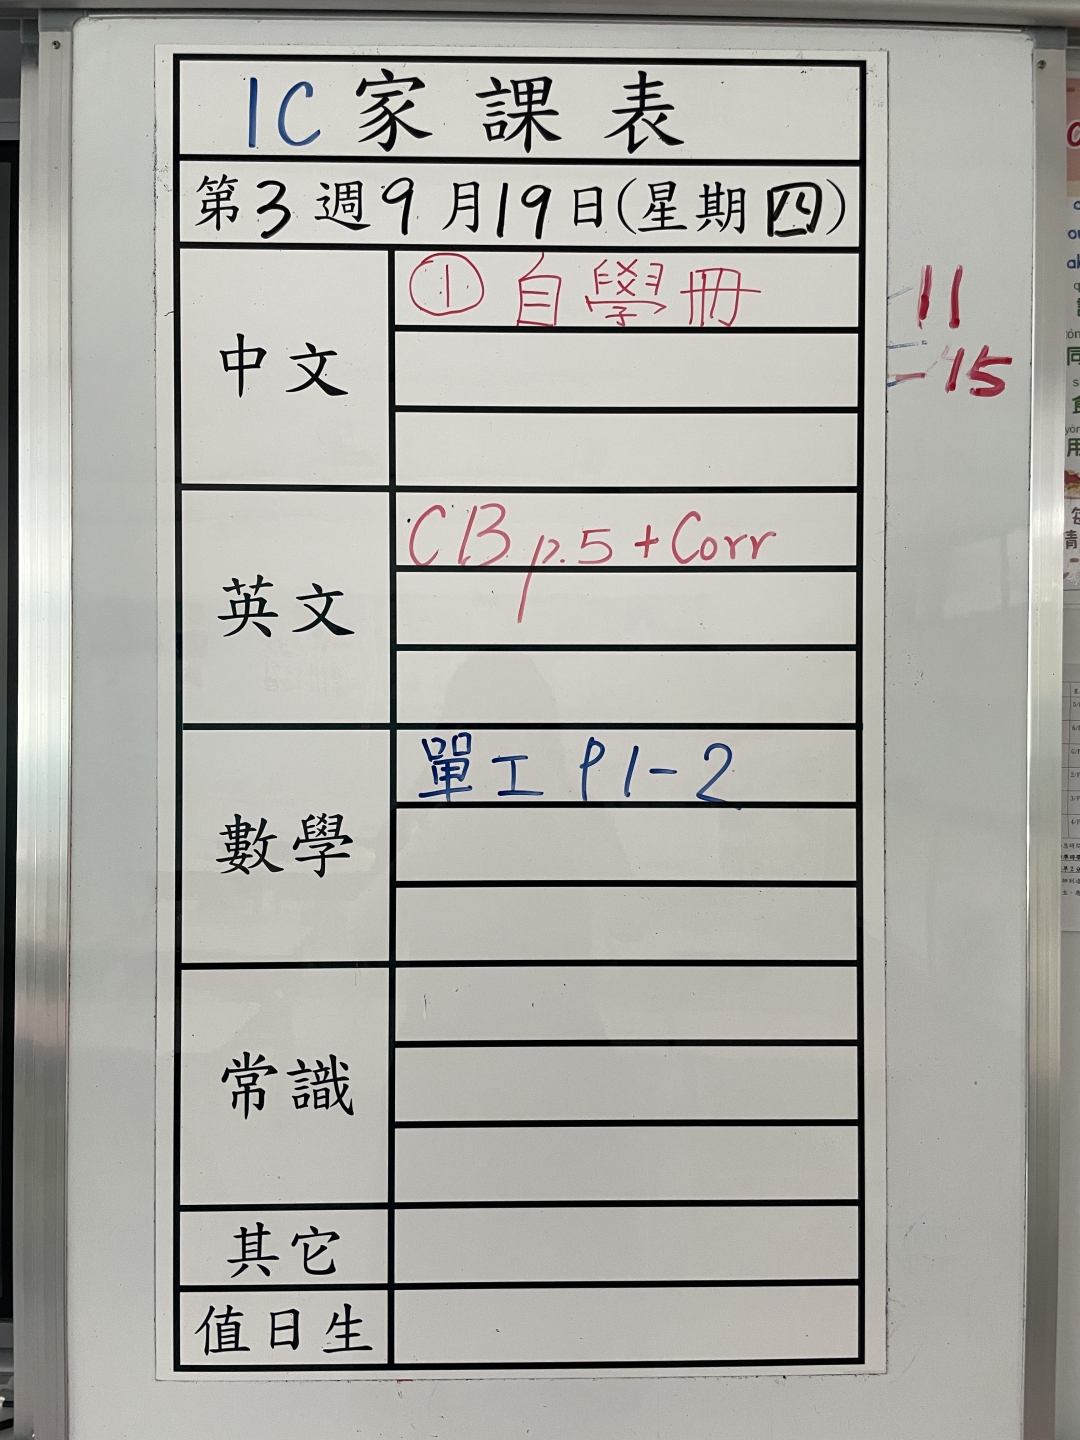 1C家課表
第3週9月19日(星期四)
中文
①自學冊
11
15
英文
CB p.5 + Corr
數學
單工 P1-2
常識
其它
值日生